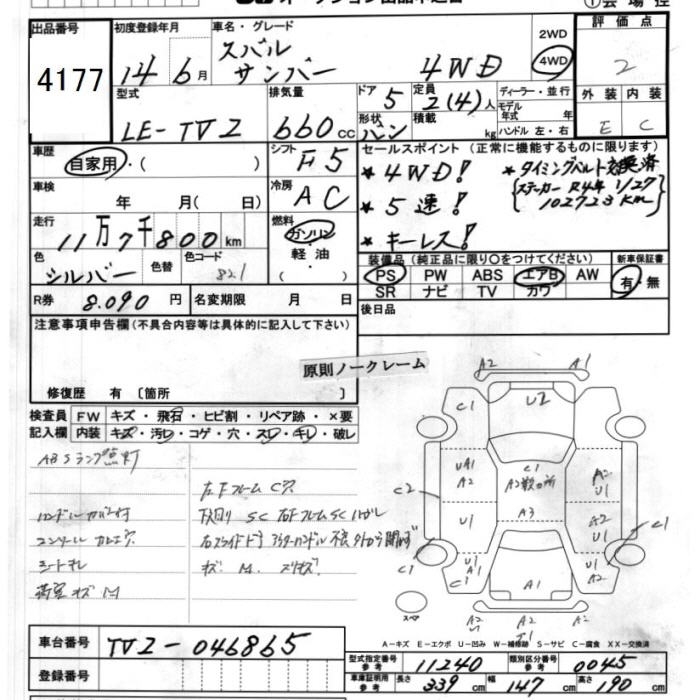 出品番号
4177
初度登録年月
14年6月
車名・グレード
スバル
サンバー 4WD
2WD
4WD
評価点
2
型式
LE-TV2
排気量
660cc
ドア
5
形状
バン
定員
2(4)人
積載
kg
ディーラー・並行
モデル
年式 年
ハンドル 左・右
外装 内装
E C
車歴
自家用・( )
シフト
F5
セールスポイント(正常に機能するものに限ります)
★4WD!
★5速!
★キーレス!
★タイミングベルト交換済
ステッカー R4年 1/27
102723km
車検
年 月( 日)
冷房
AC
走行
11万7千800km
燃料
ガソリン
・
軽油
( )
色
シルバー
色替
色コード
821
装備品(純正品に限り○をつけてください)
PS PW ABS エアB AW
SR ナビ TV カワ
新車保証書
有・無
R券 8.090円
名変期限 月 日
後日品
注意事項申告欄(不具合内容等は具体的に記入して下さい)
原則ノークレーム
修復歴 有〔箇所 〕
検査員
記入欄
FW キズ・飛石・ヒビ割・リペア跡・×要
内装 キズ・汚レ・コゲ・穴・スレ・キレ・破レ
ABSランプ点灯
左Fフレーム C穴
ハンドルカバー付
下廻り SC 右Fフレーム SCハガレ
シートキレ
荷室 キズ M
キズ M.
A2 A1
C1 U2
UA1
A2
C1
A2数ヶ所
A2
U1
C2
U1
A3
A2
U1
C1
C1
A1
U1
A2
スペア
A2 A2 A2
A-キズ E-エクボ U-凹み W-補修跡 S-サビ C-腐食 XX-交換済
車台番号 TV2-046865
登録番号
型式指定番号
参考
11240
類別区分番号
参考
0045
車庫証明用
参考
長さ 339cm 幅 147cm 高さ 190cm